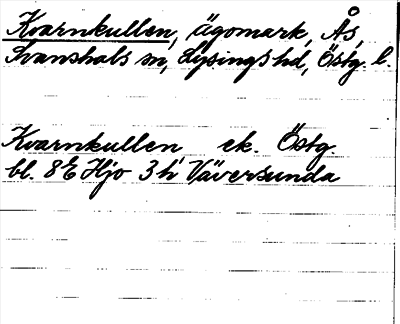 Kvarnkullen, Ägomark, Ås,
Svanshals sn, Lysings hd, Östg. l.
Kvarnkullen ek. Östg.
bl. 8E Hjo 3h Väversunda